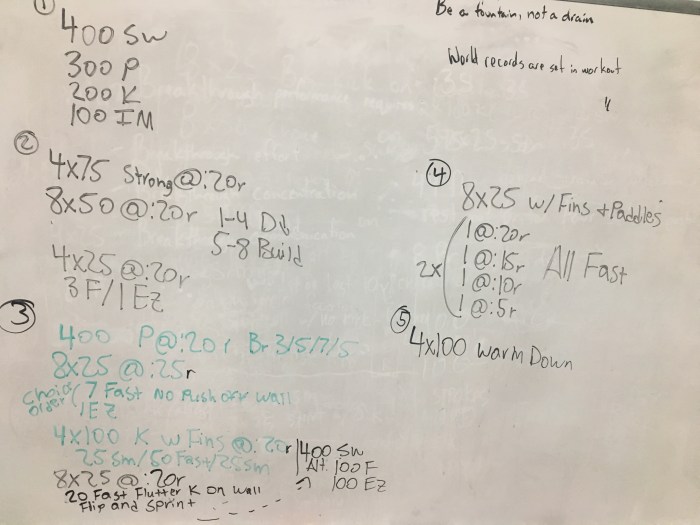 Be a fountain, not a drain
World records are set in workout
"
①
400 SW
300 P
200 K
100 IM
②
4x75 Strong @:20r
8x50 @:20r 1-4 Db
5-8 Build
4x25 @:20r
3F/1Ez
③
400 P@:20r Br 3/5/7/5
8x25 @:25r
Choice order ( 7 Fast No Push off wall
1EZ
4x100 K w Fins @:20r
25 Sm/50 Fast/25 Sm
8x25 @:20r
20 Fast Flutter K on wall
Flip and Sprint
400 SW
Alt. 100 F
100 EZ
④
8x25 w/ Fins + Paddles
2x ( 1@:20r
1@:15r
1@:10r
1@:5r
All Fast
⑤
4x100 Warm Down